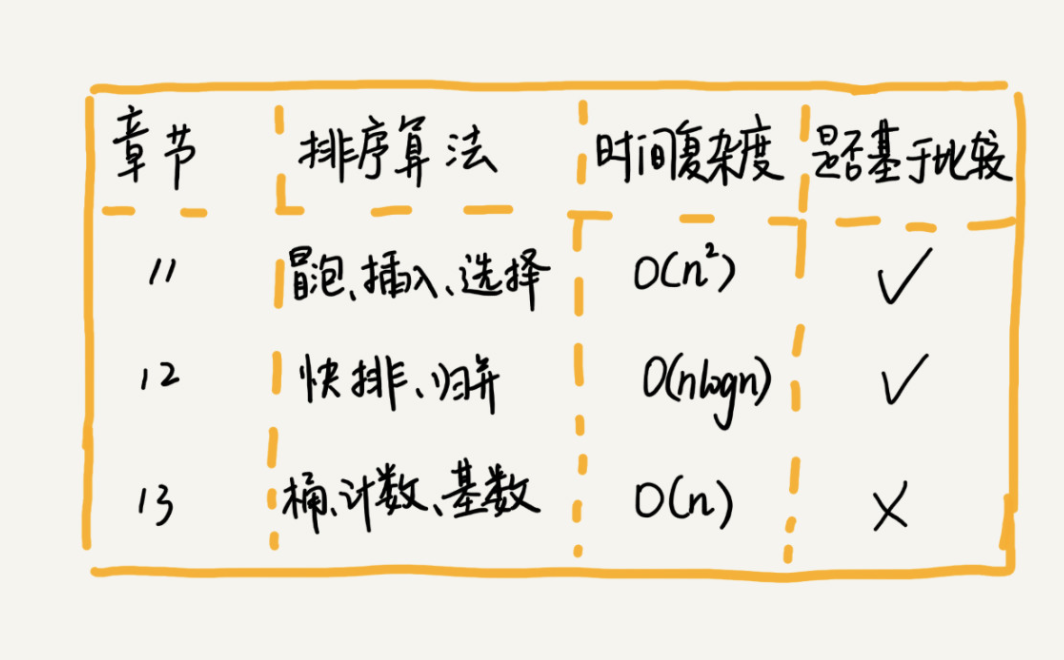 章节 排序算法 时间复杂度 是否基于比较
11 冒泡、插入、选择 O(n²) ✓
12 快排、归并 O(nlogn) ✓
13 桶、计数、基数 O(n) ✗